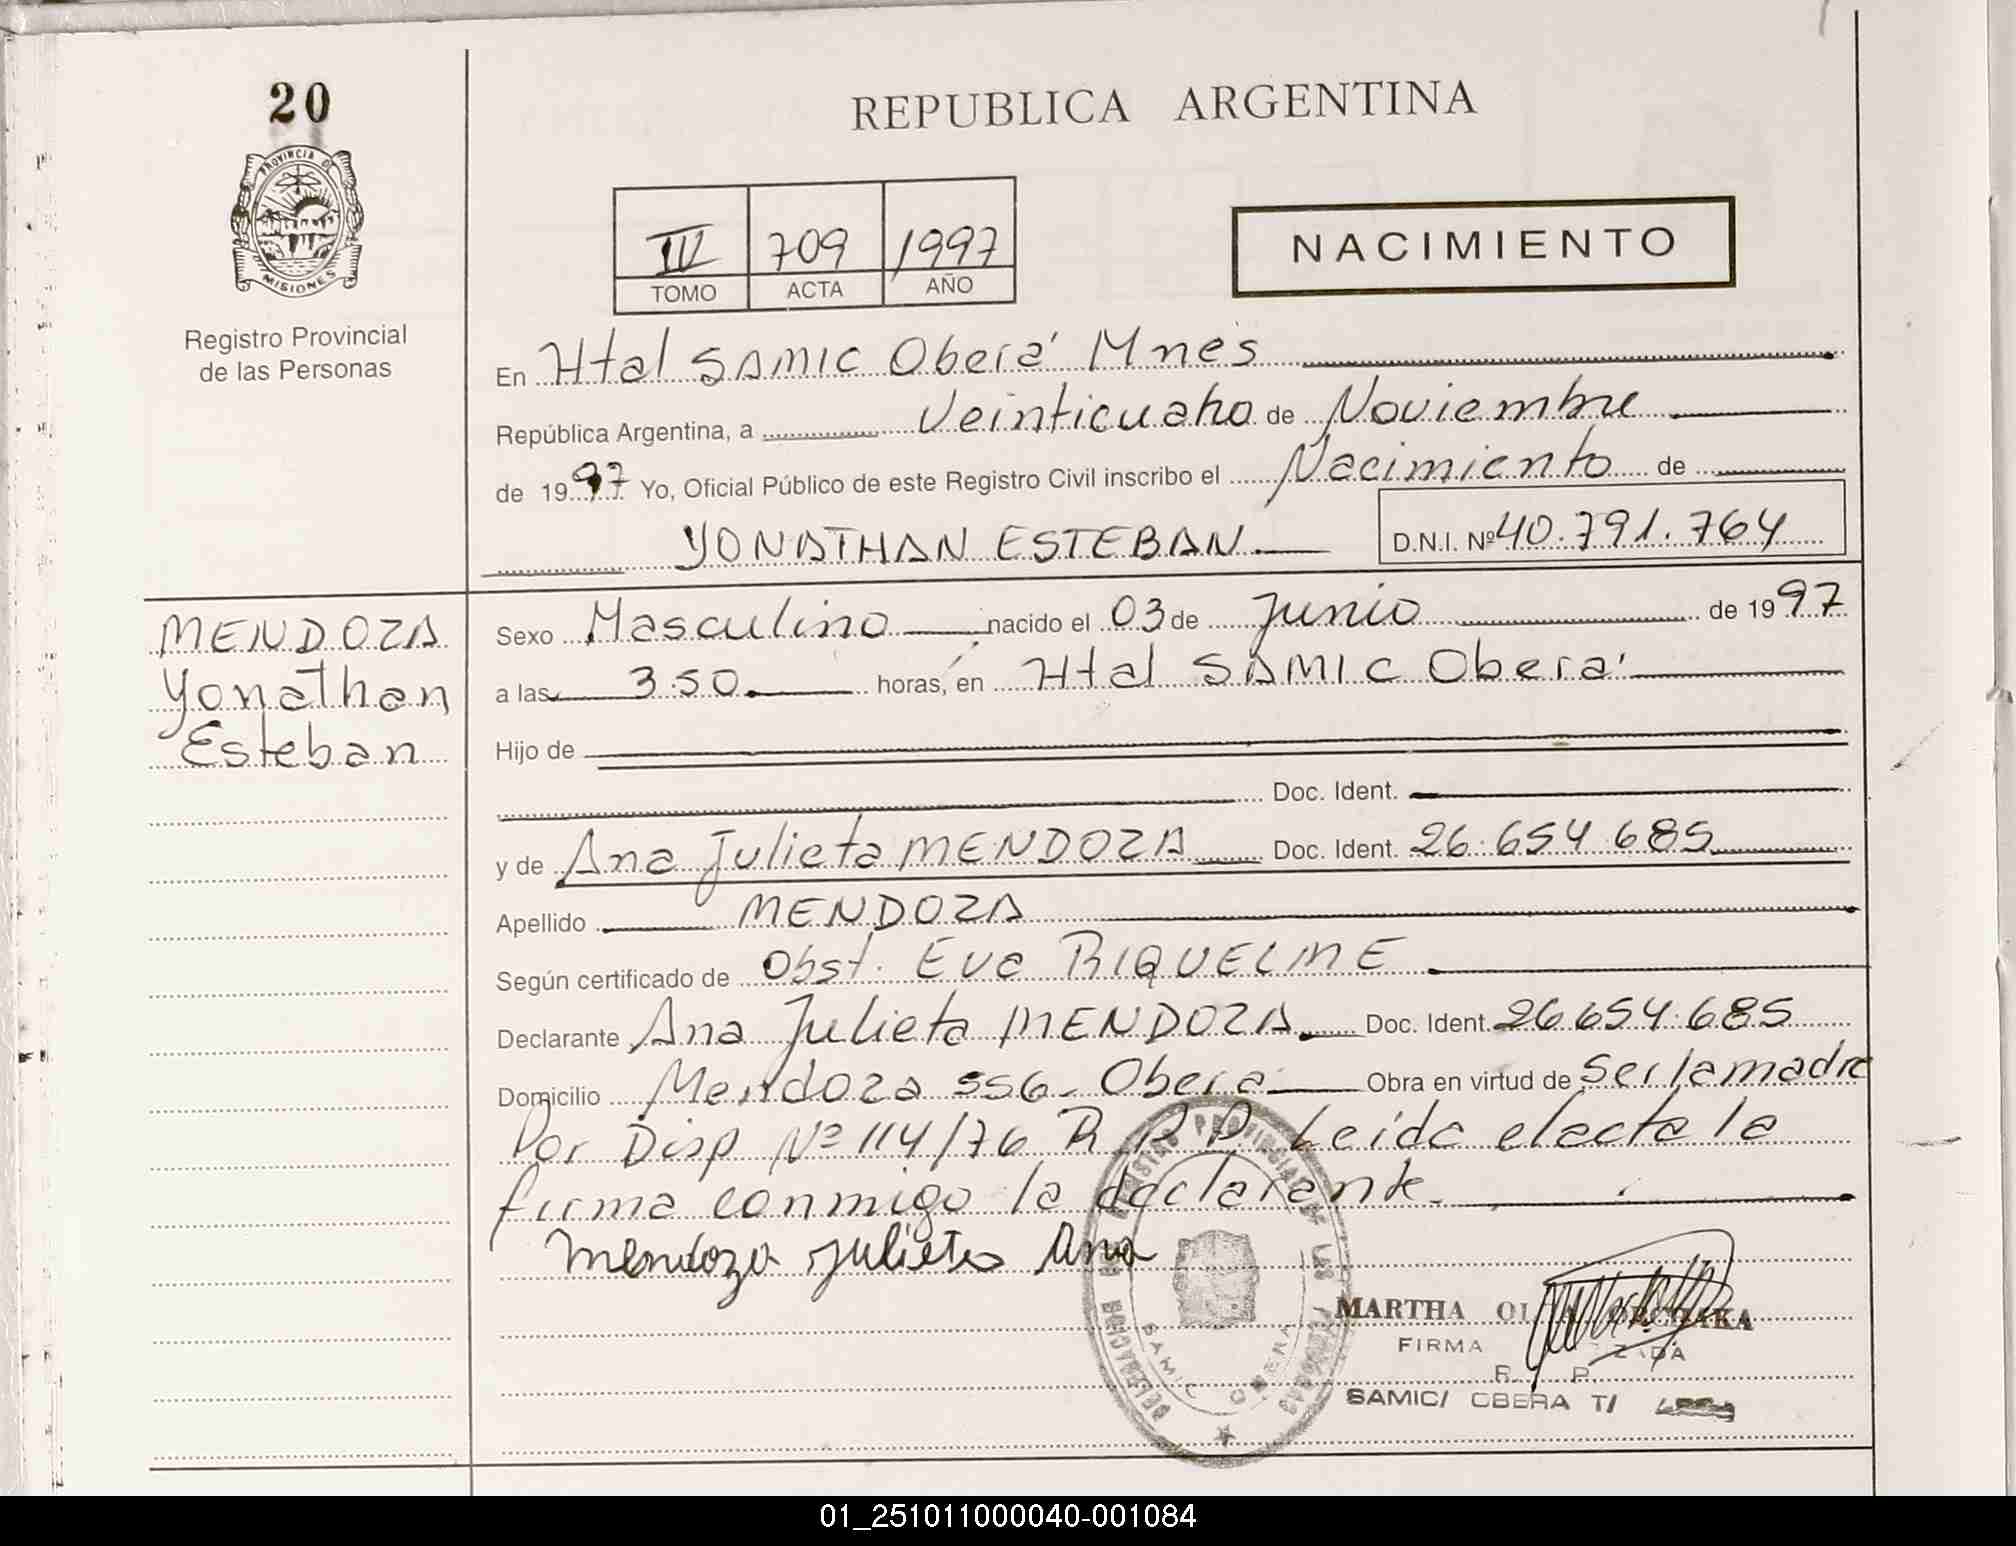 20
PROVINCIA DE
MISIONES
Registro Provincial
de las Personas
REPUBLICA ARGENTINA
IV 709 1997
TOMO ACTA AÑO
NACIMIENTO
En Htal SAMIC Oberá Mnes
República Argentina, a Veinticuatro de Noviembre
de 1997 Yo, Oficial Público de este Registro Civil inscribo el Nacimiento de
YONATHAN ESTEBAN D.N.I. Nº 40.791.764
MENDOZA
Yonathan
Esteban
Sexo Masculino nacido el 03 de Junio de 1997
a las 3.50 horas, en Htal SAMIC Oberá
Hijo de
Doc. Ident.
y de Ana Julieta MENDOZA Doc. Ident. 26.654.685
Apellido MENDOZA
Según certificado de Obst. Eva RIQUELME
Declarante Ana Julieta MENDOZA Doc. Ident. 26.654.685
Domicilio Mendoza 556 - Oberá Obra en virtud de Ser la madre
Por Disp Nº 114/76 R.P.P. Leída el acta la
firma conmigo la declarante.
Mendoza Julieta Ana
DELEGACION REGISTRO PROVINCIAL DE LAS PERSONAS
SAMIC OBERA
MARTHA
FIRMA
R. P.
SAMIC/ OBERA T/
01_251011000040-001084